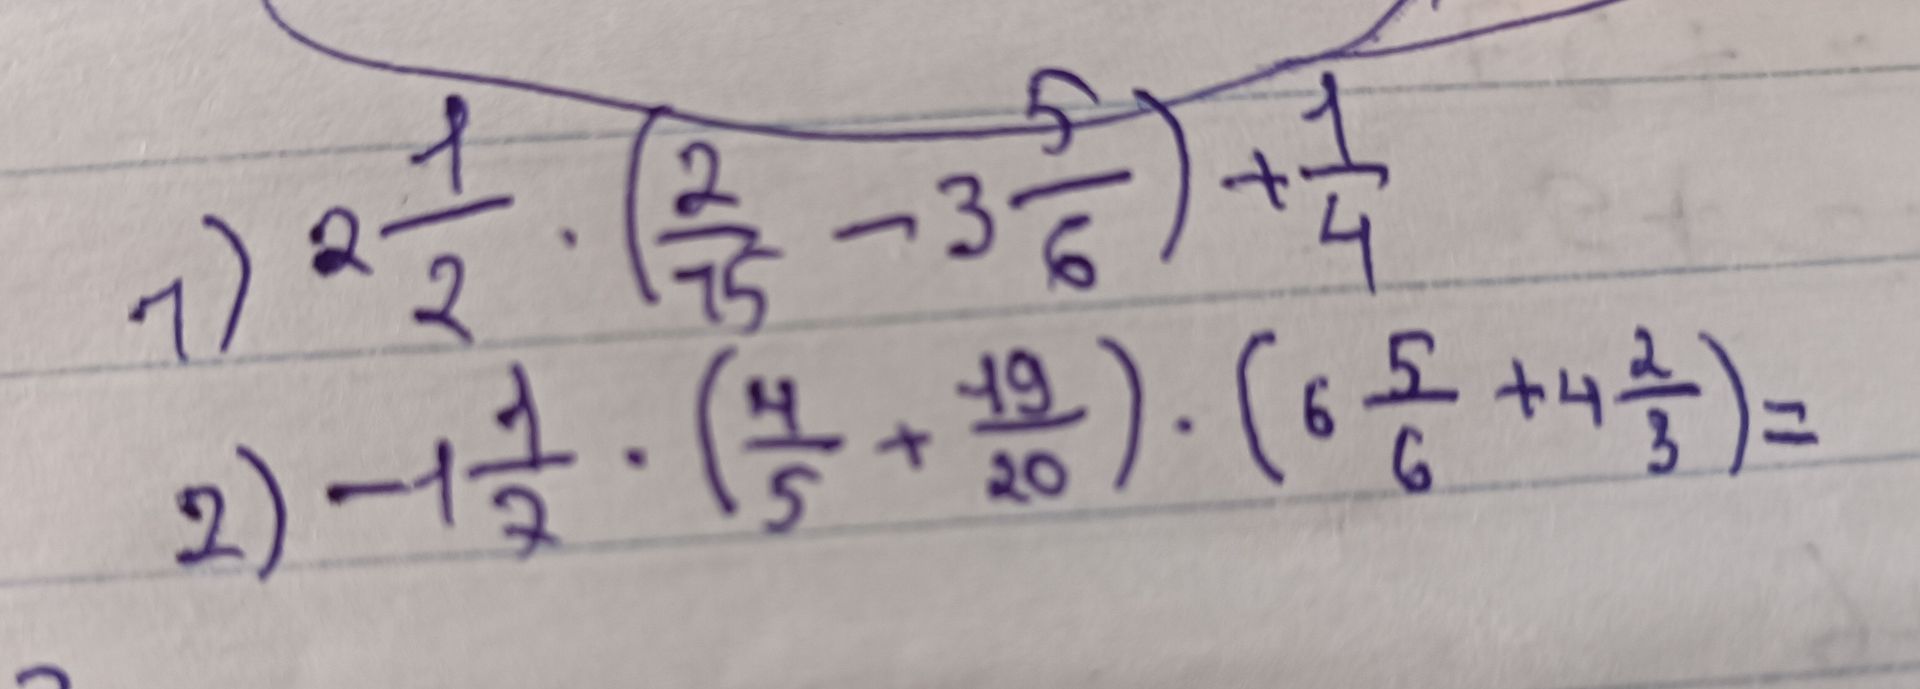 1) 2 1/2 · (2/15 − 3 5/6) + 1/4
2) −1 1/7 · (4/5 + 19/20) · (6 5/6 + 4 2/3) =